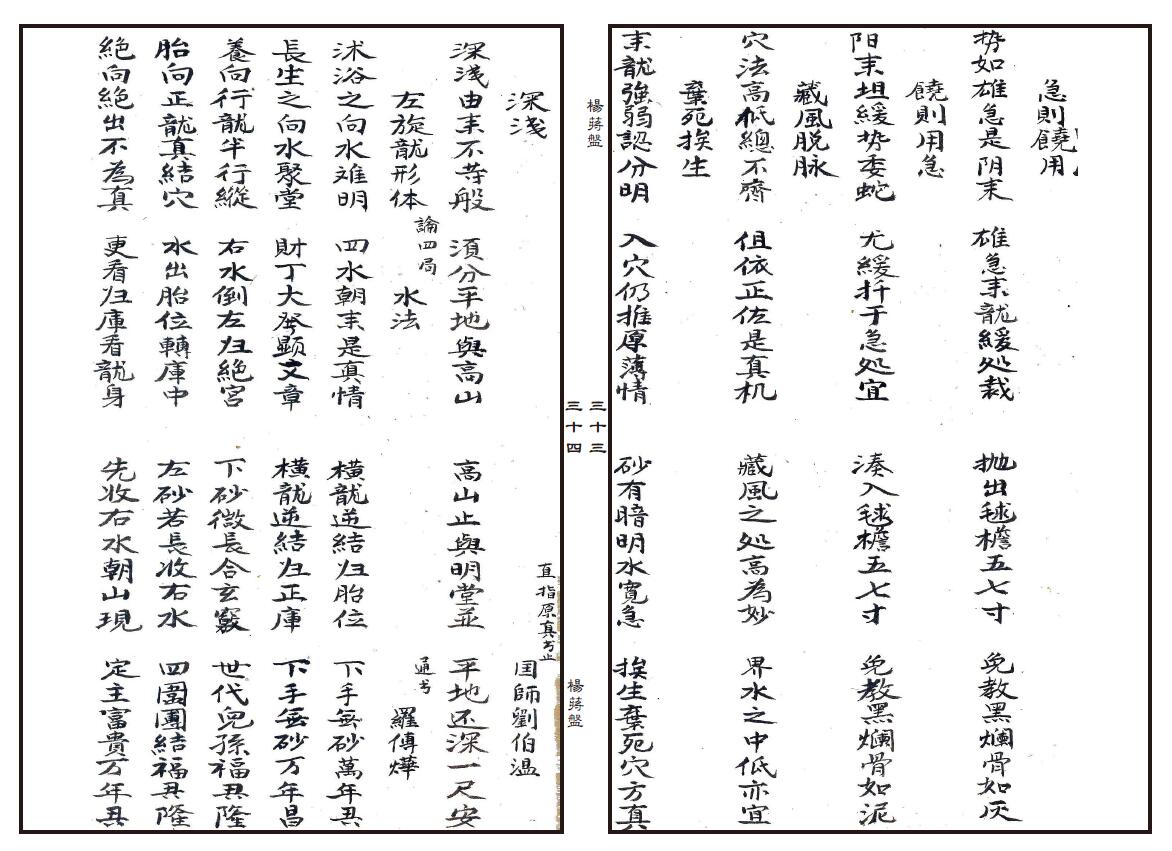 急則饒用
势如雄急是阴来 雄急来龍緩处裁 抛出毬檐五七寸 免教黑爛骨如灰
饒則用急
阳来坦緩势委蛇 尤緩扦于急处宜 湊入毬檐五七寸 免教黑爛骨如泥
藏風脱脉
穴法高低總不齊 但依正佐是真机 藏風之处高為妙 界水之中低亦宜
棄死挨生
来龍強弱認分明 入穴仍推原薄情 砂有暗明水寬急 挨生棄死穴方真
楊蔣盤
三十三
三十四
楊蔣盤
深淺 国師劉伯溫
直指原真芳止
深淺由来不等般 須分平地與高山 高山止與明堂並 平地还深一尺安
左旋龍形体 論四局 水法 通书 羅傳燁
沭浴之向水难明 四水朝来是真情 橫龍逆結归胎位 下手無砂萬年兴
長生之向水聚堂 財丁大發顕文章 橫龍逆結归正庫 下手無砂万年昌
養向行龍半行縱 右水倒左归絕宮 下砂微長合玄竅 世代兒孫福兴隆
胎向正龍真結穴 水出胎位轉庫中 左砂若長收右水 四圍團結福兴隆
絕向絕出不為真 更看归庫看龍身 先收右水朝山現 定主富貴万年兴